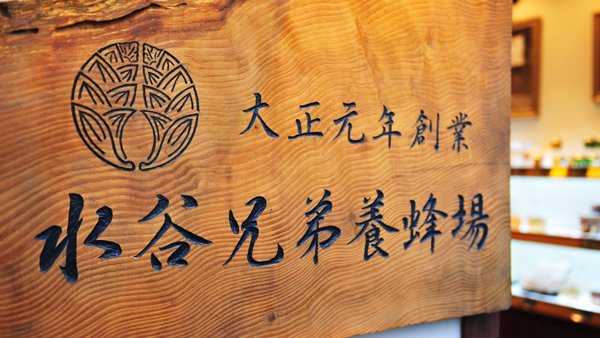 大正元年創業
水谷兄弟養蜂場